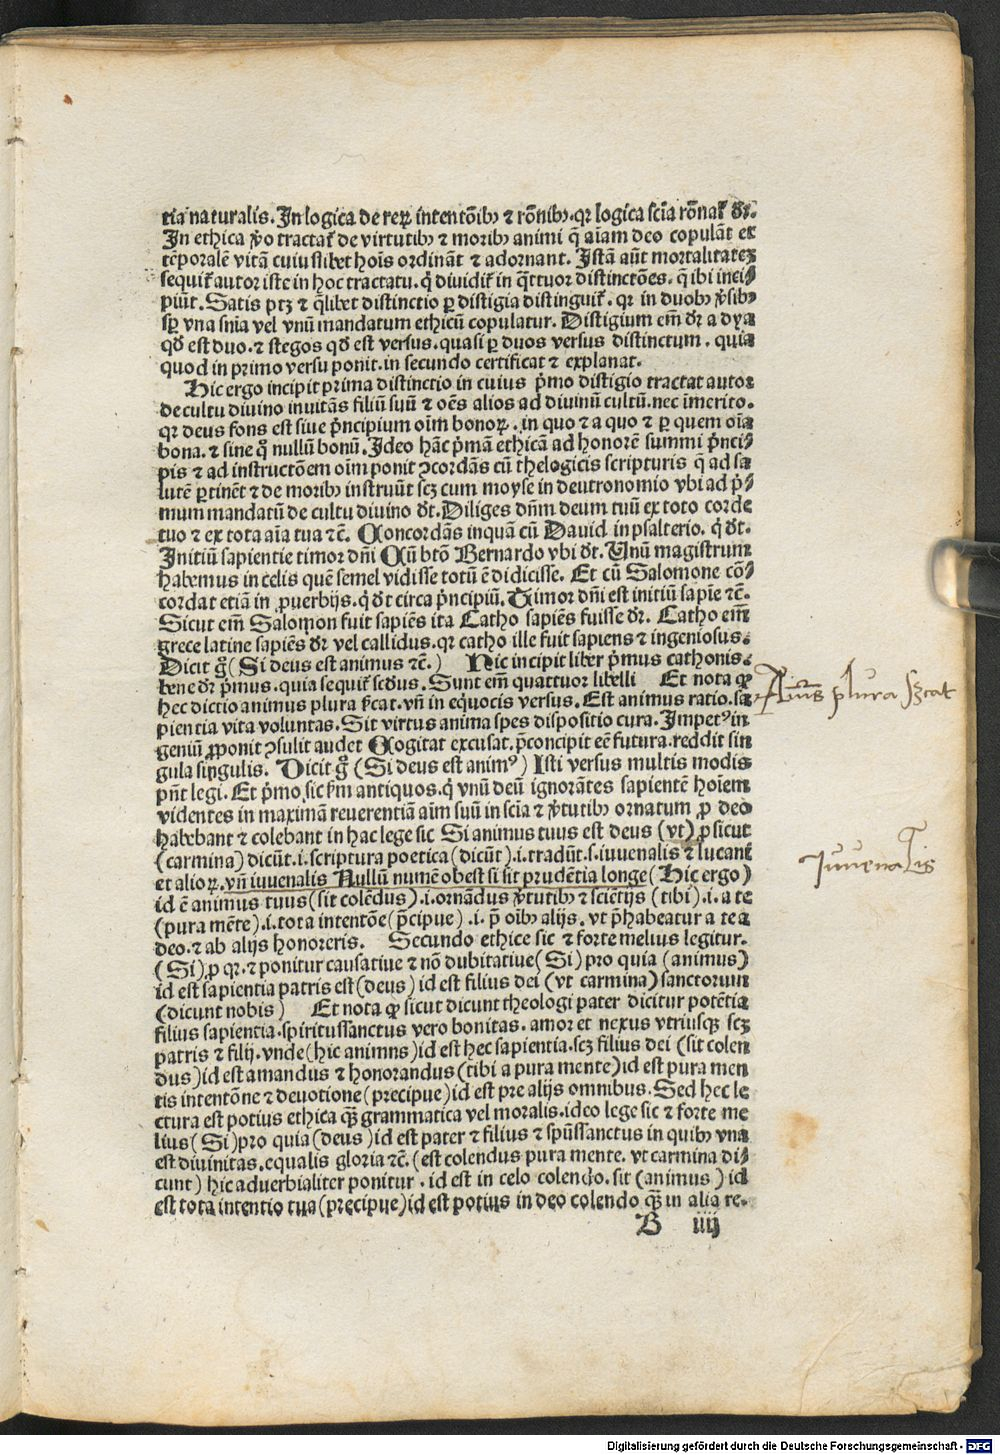 tia naturalis. In logica de reꝝ intentōibꝰ ⁊ rōnibꝰ. qr logica scīa rōnal̕ dr̄.
In ethica ꝟo tractat̕ de virtutibꝰ ⁊ moribꝰ animi q̄ aīam deo copulāt et
tēporalē vitā cuiuslibet hoīs ordināt ⁊ adornant. Istā aūt mortalitatez
sequit̕ autor iste in hoc tractatu. q̇ diuidit̕ in q̄ttuor distinctōes. q̄ ibi inci⸗
piūt. Satis ptꝫ ⁊ q̄libet distinctio ꝑ distigia distinguit̕. qr in duobꝰ ꝟsibꝰ
sꝑ vna snīa vel vnū mandatum ethicū copulatur. Distigium em̄ dr̄ a dya
qd̄ est duo. ⁊ stegos qd̄ est versus. quasi ꝑ duos versus distinctum. quia
quod in primo versu ponit. in secundo certificat ⁊ explanat.
Hic ergo incipit prima distinctio in cuius p̄mo distigio tractat autor
de cultu diuino inuitās filiū suū ⁊ oēs alios ad diuinū cultū. nec īmerito.
qr deus fons est siue p̄ncipium oīm bonoꝝ. in quo ⁊ a quo ⁊ ꝑ quem oīa
bona. ⁊ sine q̊ nullū bonū. Ideo hāc p̄mā ethicā ad honorē summi p̄nci⸗
pis ⁊ ad instructōem oīm ponit ꝯcordās cū thelogicis scripturis q̄ ad sa
lutē ꝑtinēt ⁊ de moribꝰ instruūt scꝫ cum moyse in deutronomio vbi ad p̄⸗
mum mandatū de cultu diuino dt̄. Diliges dn̄m deum tuū ex toto corde
tuo ⁊ ex tota aīa tua ⁊c̄. Concordās inquā cū Dauid in psalterio. q̇ dt̄.
Initiū sapientie timor dn̄i Cū btō Bernardo vbi dt̄. Vnū magistrum
habemus in celis quē semel vidisse totū ē didicisse. Et cū Salomone cō⸗
cordat etiā in ꝓuerbijs. q̇ dt̄ circa p̄ncipiū. Timor dn̄i est initiū sapīe ⁊c̄.
Sicut em̄ Salomon fuit sapiēs ita Catho sapiēs fuisse dr̄. Catho em̄
grece latine sapiēs dr̄ vel callidus. qr catho ille fuit sapiens ⁊ ingeniosus.
Dicit g̊ (Si deus est animus ⁊c̄.) Hic incipit liber p̄mus cathonis.
bene dr̄ p̄mus. quia sequit̕ scd̄us. Sunt em̄ quattuor libelli Et nota ꝙ
hec dictio animus plura ſ̄cat. vn̄ in equocis versus. Est animus ratio. sa
pientia vita voluntas. Sit virtus anima spes dispositio cura. Impetꝰ in
geniū ꝓponit ꝯsulit audet Cogitat excusat. p̄concipit eē futura. reddit sin
gula singulis. Dicit g̊ (Si deus est animꝰ) Isti versus multis modis
pn̄t legi. Et p̄mo sic ẜm antiquos. q̇ vnū deū ignorātes sapientē hoīem
videntes in maximā reuerentiā aīm suū in scīa ⁊ ꝟtutibꝰ ornatum ꝓ deo
habebant ⁊ colebant in hac lege sic Si animus tuus est deus (vt) ꝓ sicut
(carmina) dicūt. i. scriptura poetica (dicūt) .i. tradūt. s. iuuenalis ⁊ lucani
et alioꝝ. vn̄ iuuenalis Nullū numē obest si sit prudētia longe (Hic ergo)
id ē animus tuus (sit colēdus) .i. ornādus ꝟtutibꝰ ⁊ sciētijs (tibi) .i. a te
(pura mēte) .i. tota intentōe (p̄cipue) .i. p̄ oībꝰ alijs. vt p̄habeatur a te a
deo. ⁊ ab alijs honoreris. Secundo ethice sic ⁊ forte melius legitur.
(Si) ꝓ qr. ⁊ ponitur causatiue ⁊ nō dubitatiue (Si) pro quia (animus)
id est sapientia patris est (deus) id est filius dei (vt carmina) sanctorum
(dicunt nobis) Et nota ꝙ sicut dicunt theologi pater dicitur potētia
filius sapientia. spiritussanctus vero bonitas. amor et nexus vtriusqꝫ scꝫ
patris ⁊ filij. vnde (hic animns) id est hec sapientia. scꝫ filius dei (sit colen
dus) id est amandus ⁊ honorandus (tibi a pura mente) id est pura men
tis intentōne ⁊ deuotione (precipue) id est pre alijs omnibus. Sed hec le
ctura est potius ethica qꝫ̄ grammatica vel moralis. ideo lege sic ⁊ forte me
lius (Si) pro quia (deus) id est pater ⁊ filius ⁊ spūssanctus in quibꝰ vna
est diuinitas. equalis gloria ⁊c̄. (est colendus pura mente. vt carmina di⸗
cunt) hic aduerbialiter ponitur. id est in celo colendo. sit (animus) id
est tota intentio tua (precipue) id est potius in deo colendo qꝫ̄ in alia re.
B iiij
Aīus plura ſꝫcat
Iuuenalis